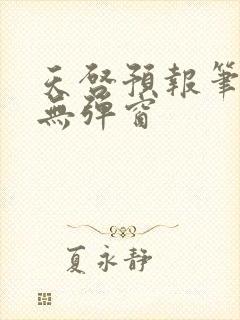 天啓預報筆
無彈窗
夏永靜